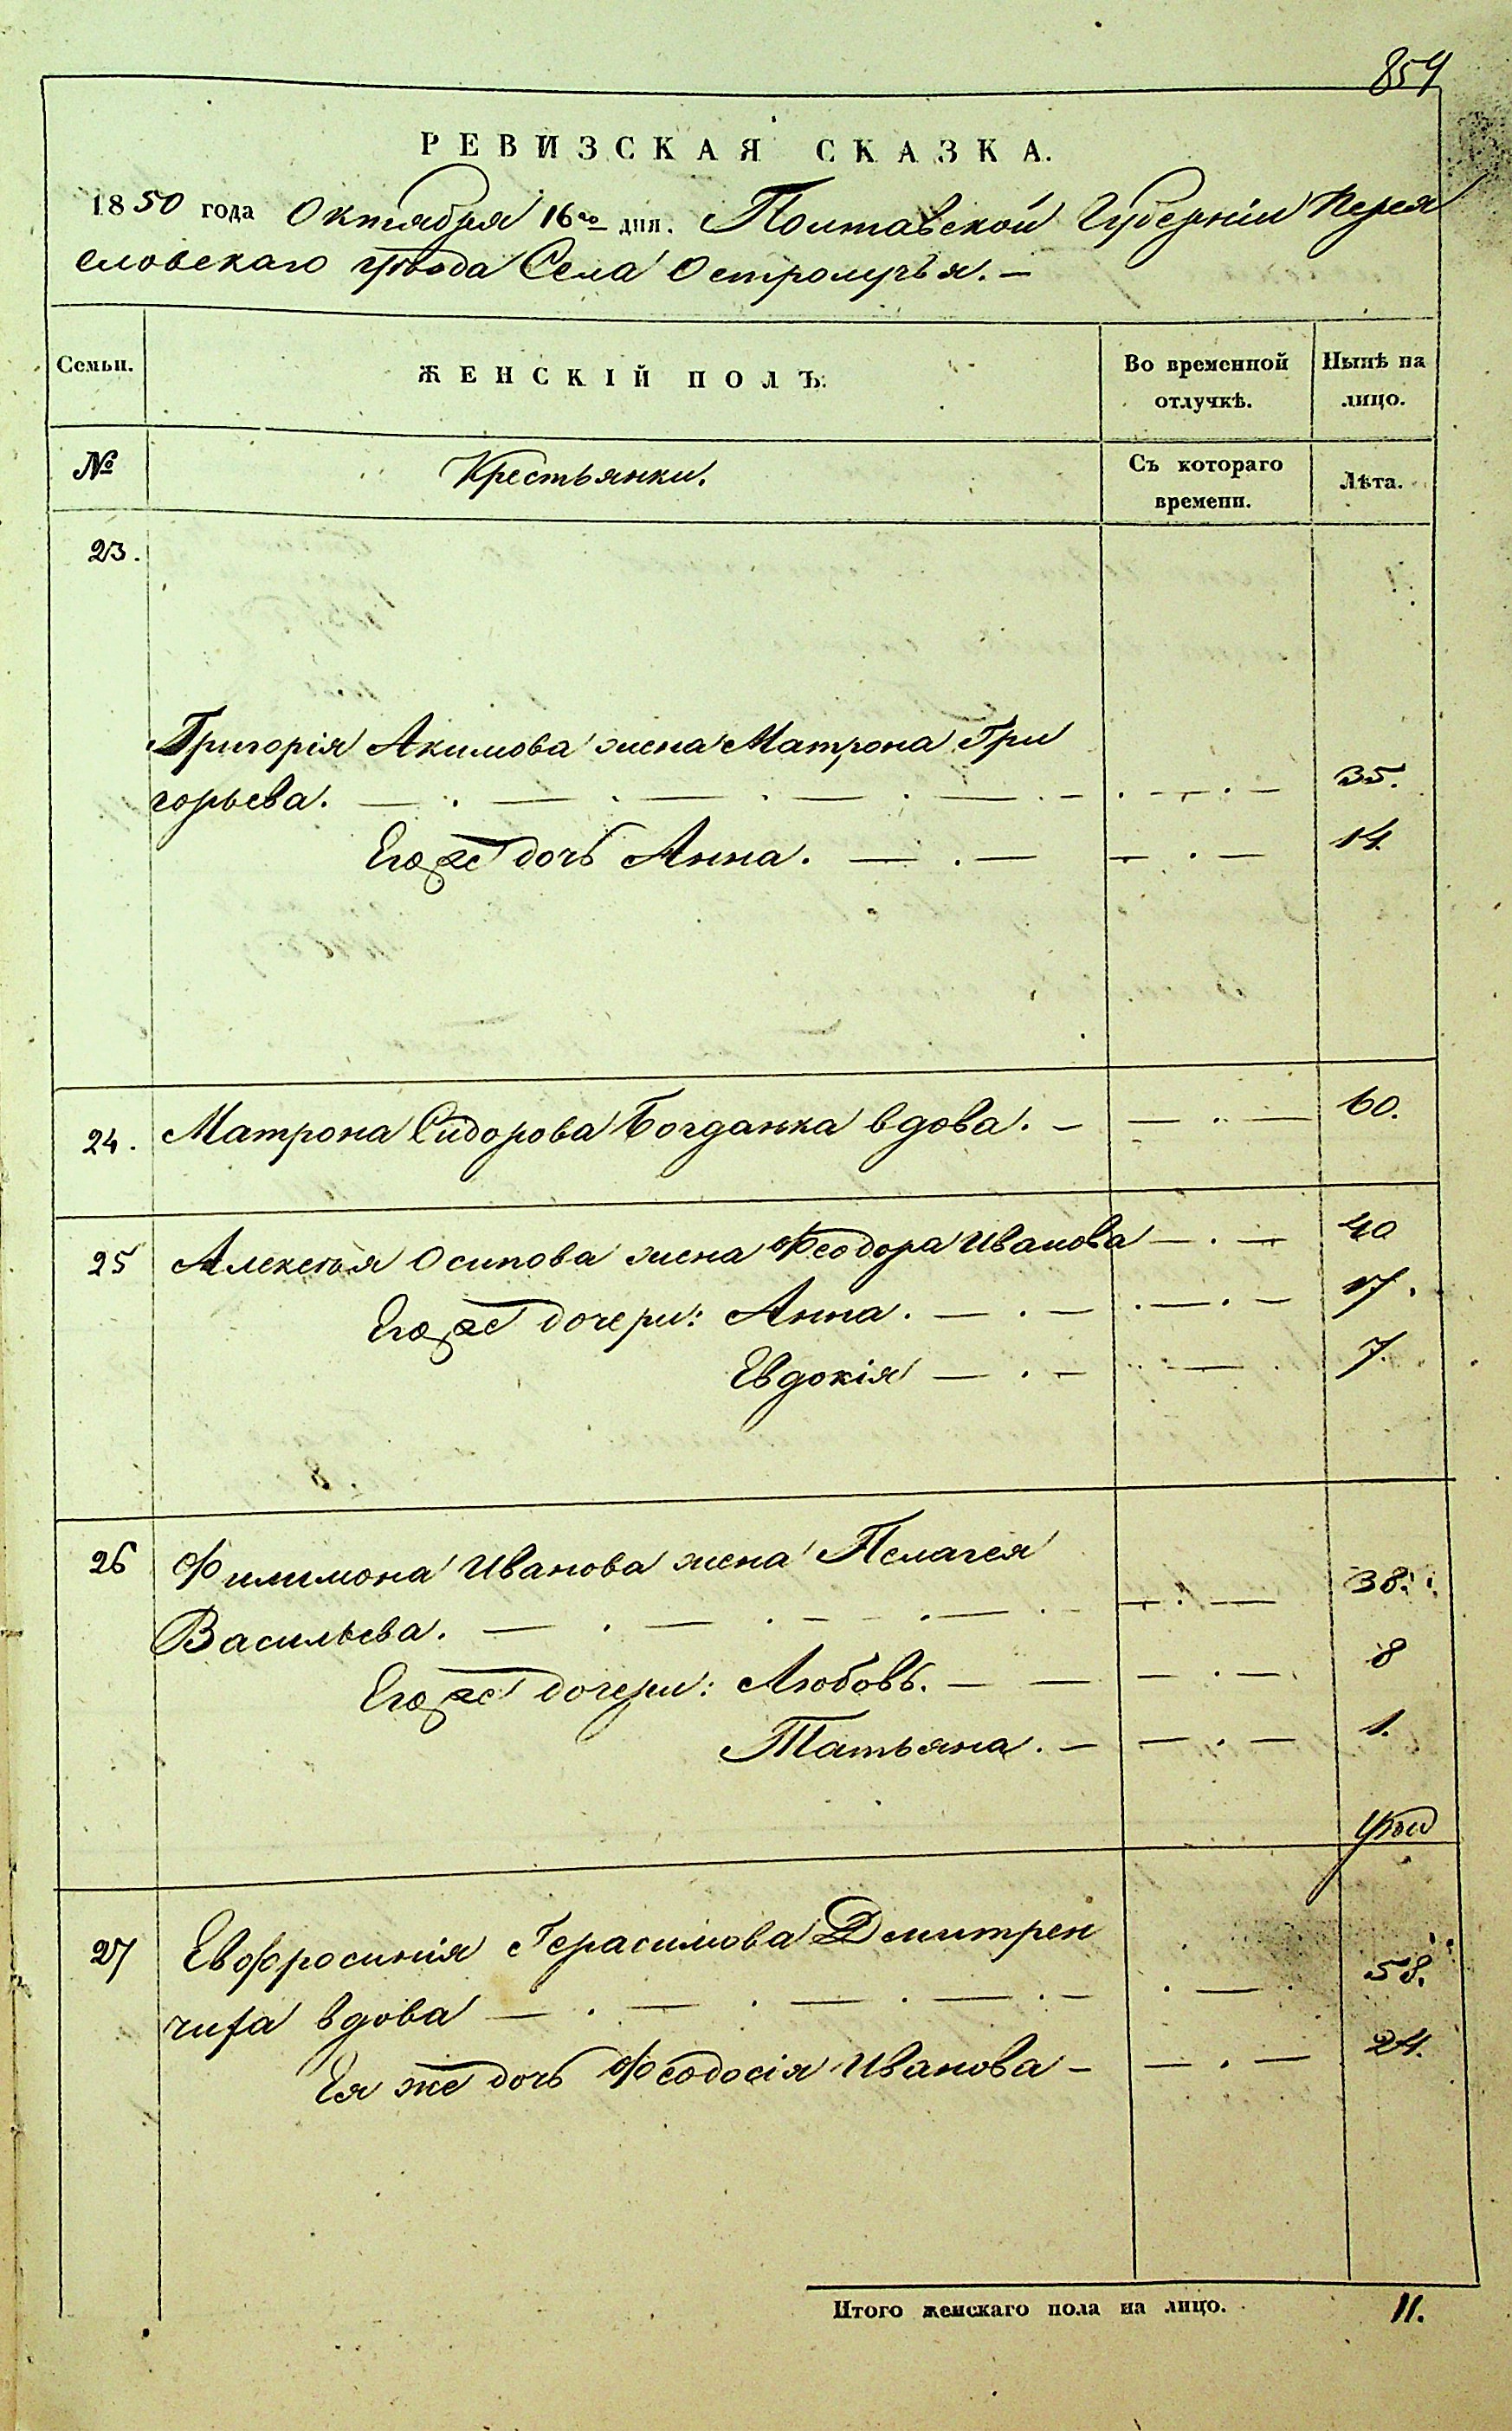 859
РЕВИЗСКАЯ СКАЗКА.
1850 года Октября 16го дня. Полтавской Губерніи Перея
словскаго уѣзда Села Остролучья. —
Семьи.
ЖЕНСКІЙ ПОЛЪ.
Во временной отлучкѣ.
Нынѣ на лицо.
№
Крестьянки.
Съ котораго времени.
Лѣта.
23.
Григорія Акимова жена Матрона Гри
горьева. 35.
Его же дочь Анна. 14.
24. Матрона Сидорова Богданка вдова. 60.
25 Алексѣя Осипова жена Феодора Иванова 40
Его же дочери: Анна. 17.
Евдокія 7.
26 Филимона Иванова жена Пелагея
Васильева. 38.
Его же дочери: Любовь. 8
Татьяна. 1.
27 Евфросинія Герасимова Дмитрен
чиха вдова 58.
Ея же дочь Феодосія Иванова 24.
Итого женскаго пола на лицо. 11.